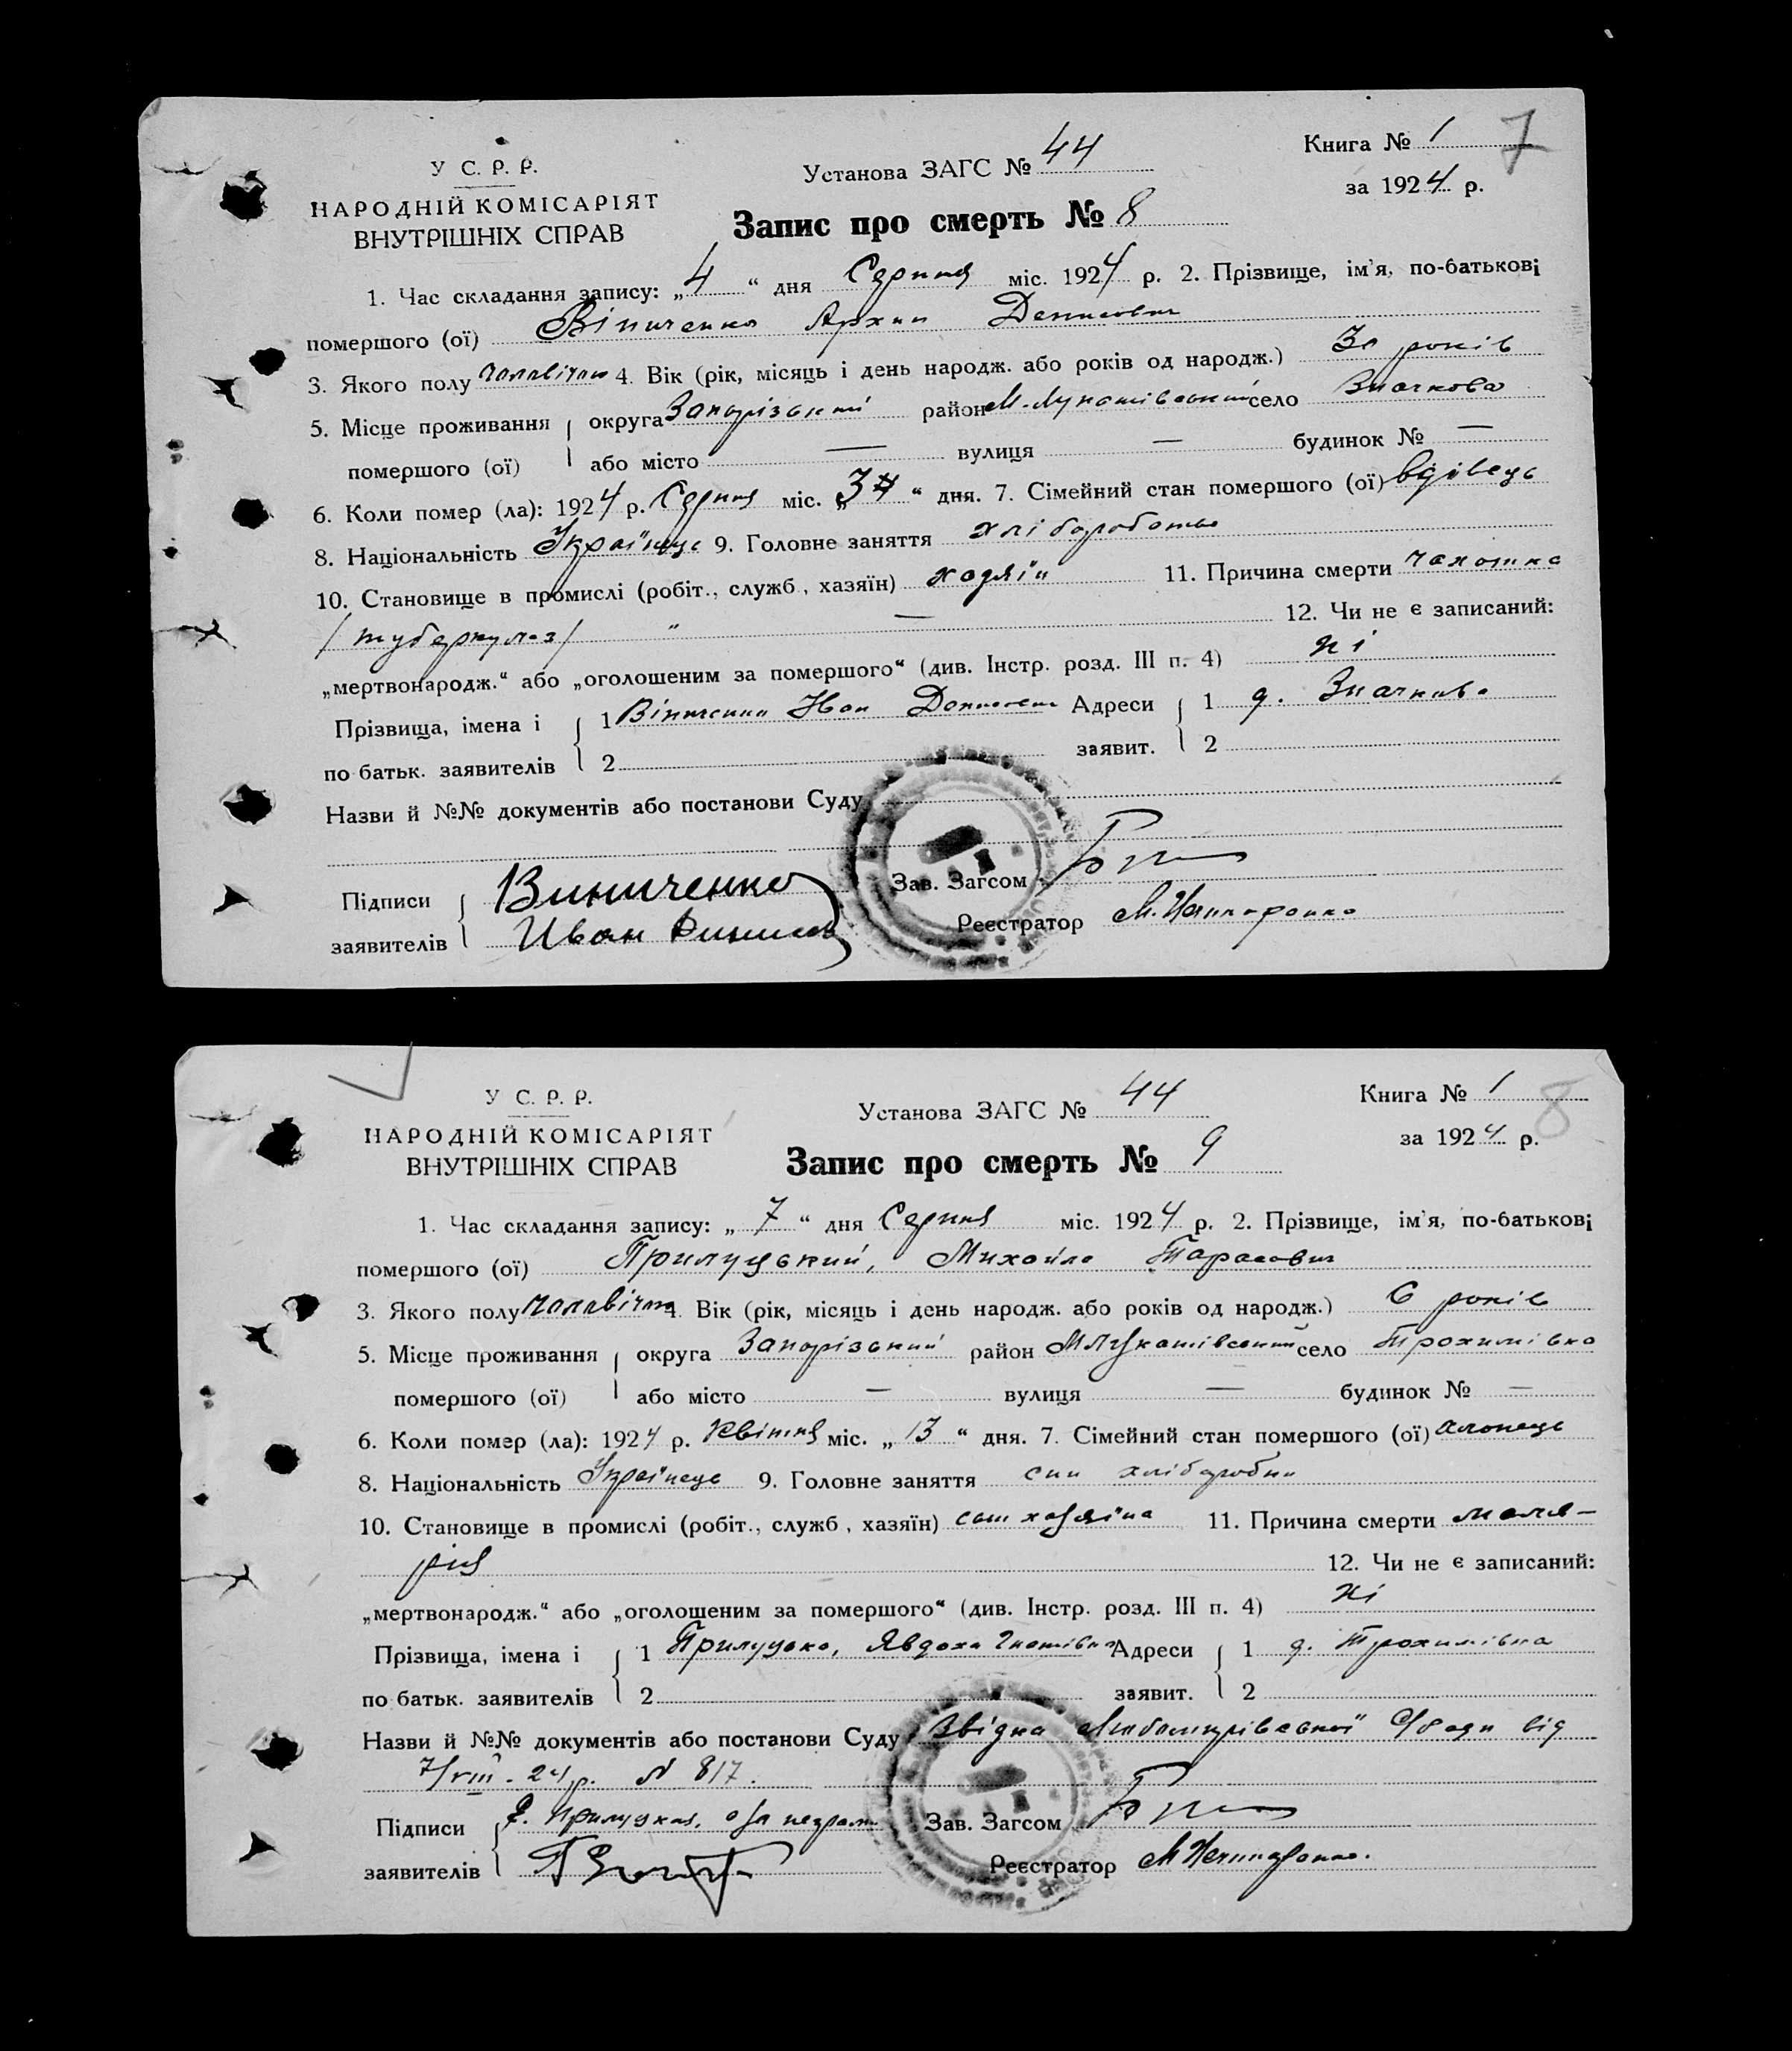 7
У С. Р. Р.
НАРОДНІЙ КОМІСАРІЯТ
ВНУТРІШНІХ СПРАВ
Установа ЗАГС № 44
Книга № 1
за 1924 р.
Запис про смерть № 8
1. Час складання запису: „4“ дня Серпня міс. 1924 р. 2. Прізвище, ім'я, по-батькові
помершого (ої) Вініченко Архип Денисович
3. Якого полу чоловічого 4. Вік (рік, місяць і день народж. або років од народж.) 30 років
5. Місце проживання округа Запорізький район М-Лукашівський село Значкова
помершого (ої) або місто — вулиця — будинок № —
6. Коли помер (ла): 1924 р. Серпня міс. „3“ дня. 7. Сімейний стан помершого (ої) вдівець
8. Національність Українець 9. Головне заняття хліборобство
10. Становище в промислі (робіт., служб., хазяїн) хазяїн 11. Причина смерти чахотка
/туберкульоз/ " — 12. Чи не є записаний:
„мертвонародж.“ або „оголошеним за помершого“ (див. Інстр. розд. III п. 4) ні
Прізвища, імена і 1 Вініченко Іван Денисович Адреси 1 д. Значкова
по батьк. заявителів 2 заявит. 2
Назви й №№ документів або постанови Суду
Підписи Виниченко Зав. Загсом
заявителів Иван Реєстратор
8
У С. Р. Р.
НАРОДНІЙ КОМІСАРІЯТ
ВНУТРІШНІХ СПРАВ
Установа ЗАГС № 44
Книга № 1
за 1924 р.
Запис про смерть № 9
1. Час складання запису: „7“ дня Серпня міс. 1924 р. 2. Прізвище, ім'я, по-батькові
помершого (ої) Прилуцький, Михайло Тарасович
3. Якого полу чоловічого 4. Вік (рік, місяць і день народж. або років од народж.) 6 років
5. Місце проживання округа Запорізький район МЛукашівський село Трохимівка
помершого (ої) або місто — вулиця — будинок № —
6. Коли помер (ла): 1924 р. Квітня міс. „13“ дня. 7. Сімейний стан помершого (ої) хлопець
8. Національність Українець 9. Головне заняття син хлібороба
10. Становище в промислі (робіт., служб., хазяїн) син хазяїна 11. Причина смерти маля-
рія 12. Чи не є записаний:
„мертвонародж.“ або „оголошеним за помершого“ (див. Інстр. розд. III п. 4) ні
Прізвища, імена і 1 Прилуцька, Явдоха Гнатівна Адреси 1 д. Трохимівка
по батьк. заявителів 2 заявит. 2
Назви й №№ документів або постанови Суду Звідка С/Ради від
7/VIII-24р. N 817.
Підписи Прилуцкая, за неграм. Зав. Загсом
заявителів Реєстратор